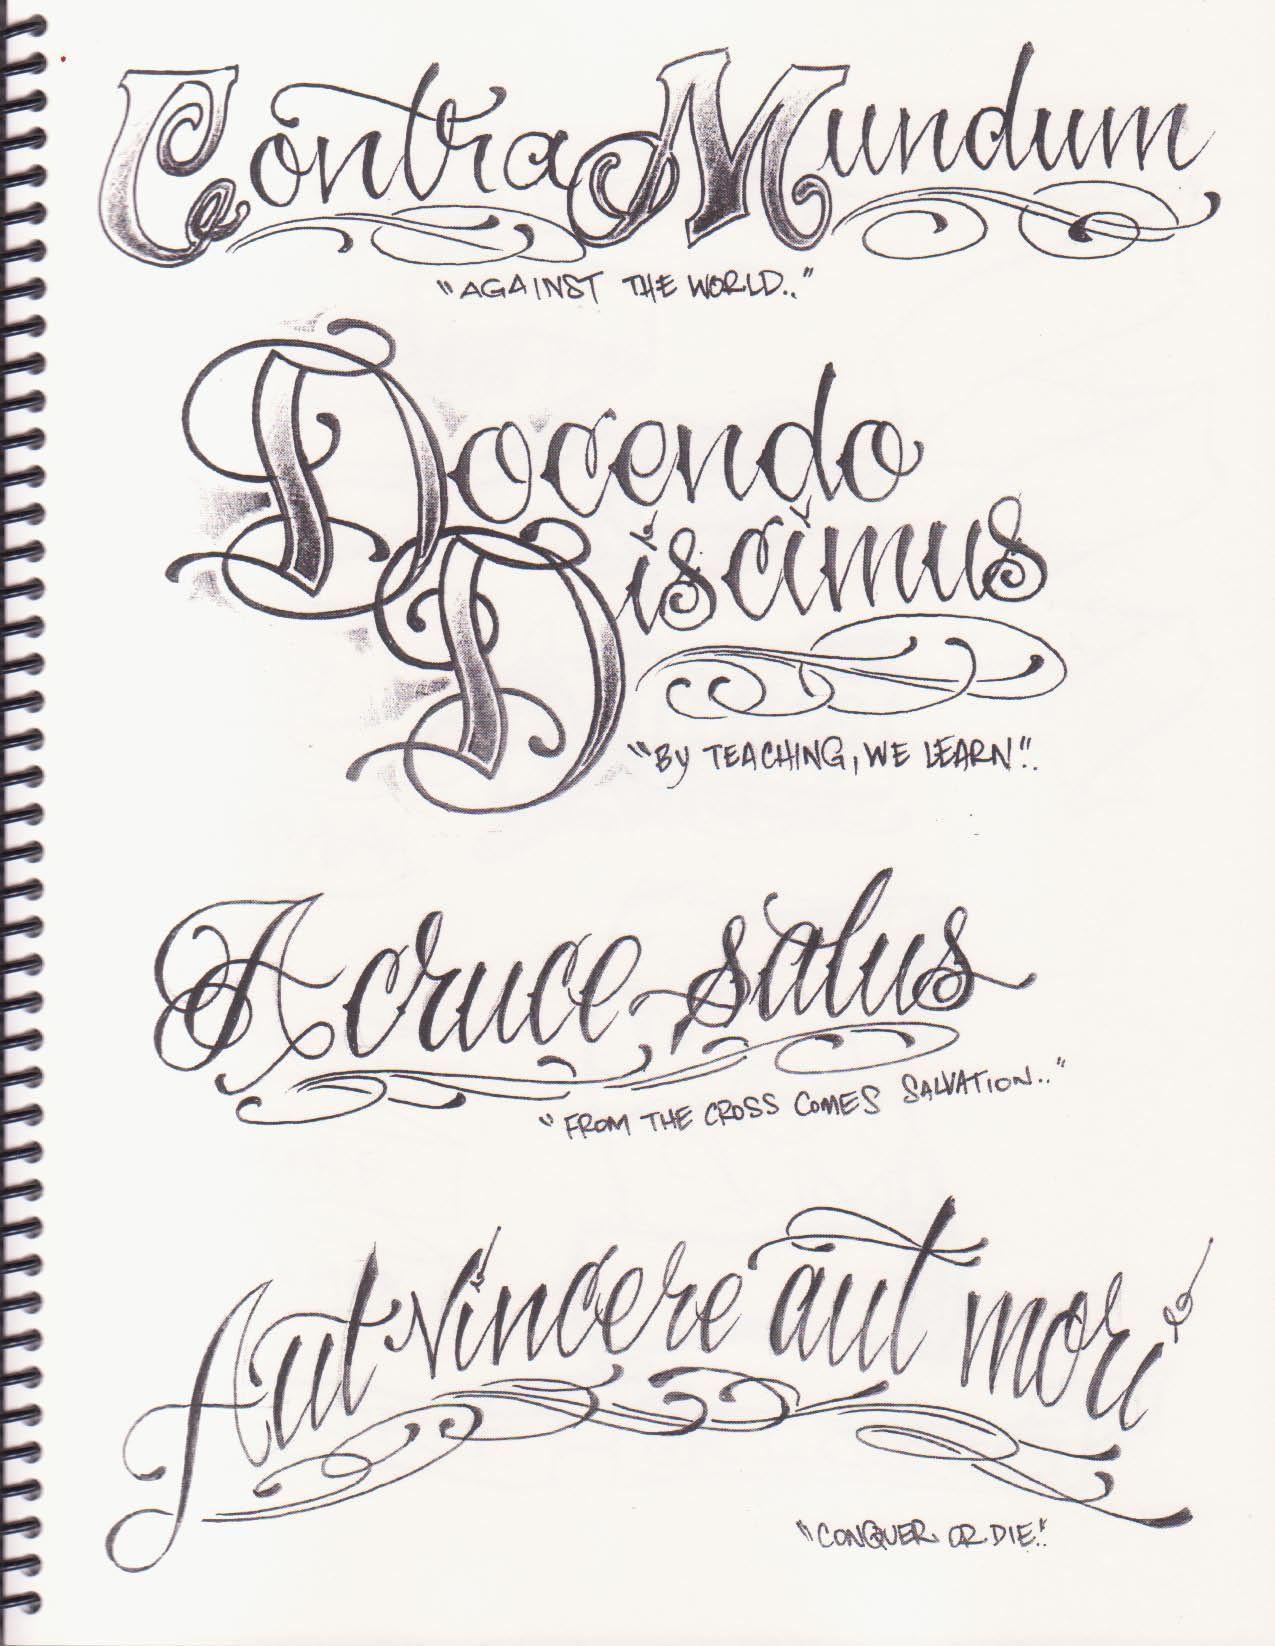 Contra Mundum
"AGAINST THE WORLD.."
Docendo
Discimus
"BY TEACHING, WE LEARN"..
A cruce salus
"FROM THE CROSS COMES SALVATION.."
Aut vincere aut mori
"CONQUER OR DIE.."